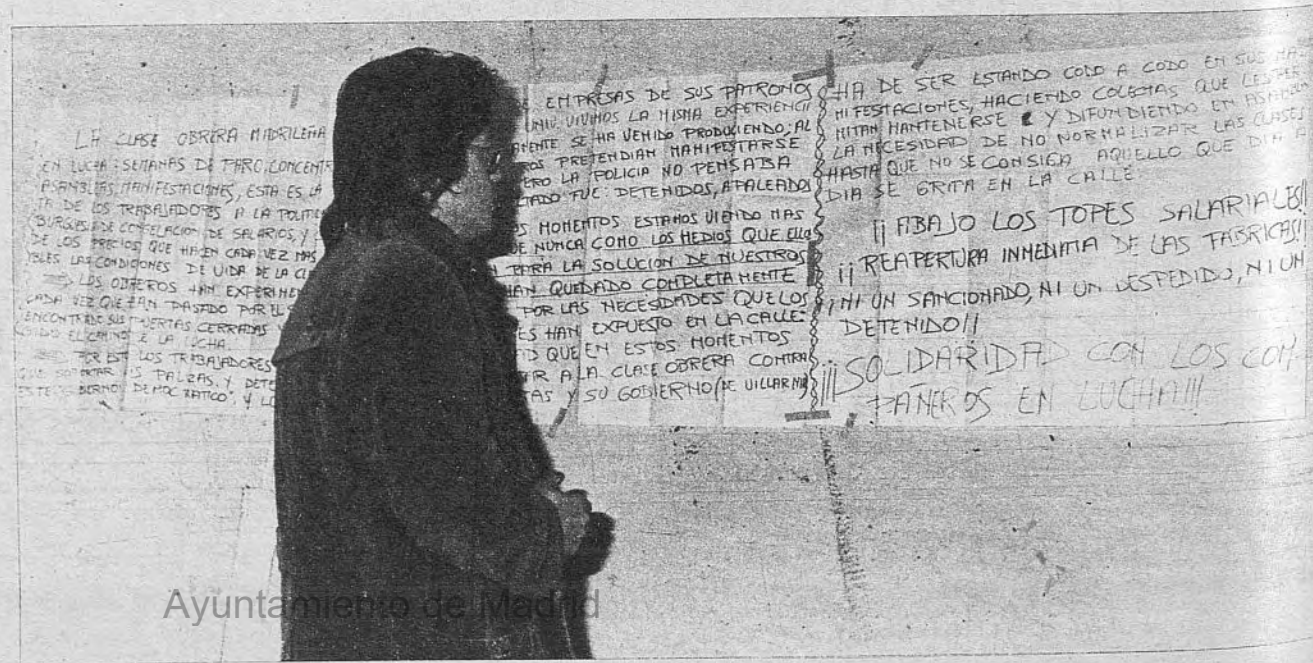 LA CLASE OBRERA MADRILEÑA
EN LUCHA: SEMANAS DE PARO, CONCENT
ASAMBLEAS, MANIFESTACIONES, ESTA ES LA
TA DE LOS TRABAJADORES A LA POLITI
BURGUESA DE CONGELACION DE SALARIOS, Y
DE LOS PRECIOS QUE HACEN CADA VEZ MAS
IBLES LAS CONDICIONES DE VIDA DE LA CL
LOS OBREROS HAN EXPERIMEN
CADA VEZ QUE HAN PASADO POR EL
ENCONTRADE SUS PUERTAS CERRADAS
EL CAMINO DE LA LUCHA.
POR ESO LOS TRABAJADORES
QUE SOPORTAR LAS PALIZAS, Y DETE
ESTE GOBIERNO "DEMOCRATICO", Y LO
E EMPRESAS DE SUS PATRONOS
UNIV. VIVIMOS LA MISMA EXPERIENCI
AMENTE SE HA VENIDO PRODUCIENDO, AL
ROS PRETENDIAN MANIFESTARSE
ERO LA POLICIA NO PENSABA
TADO FUE: DETENIDOS, APALEADOS
OS MOMENTOS ESTAMOS VIENDO MAS
E NUNCA COMO LOS MEDIOS QUE ELLO
N PARA LA SOLUCION DE NUESTROS
HAN QUEDADO COMPLETAMENTE
POR LAS NECESIDADES QUE LOS
ES HAN EXPUESTO EN LA CALLE:
D QUE EN ESTOS MOMENTOS
R A LA CLASE OBRERA CONTRA
TAS Y SU GOBIERNO (DE VILLAR MIR)
HA DE SER ESTANDO CODO A CODO EN SUS MA-
NIFESTACIONES, HACIENDO COLECTAS QUE LES PER
MITAN MANTENERSE Y DIFUNDIENDO EN ASAMBLE
LA NECESIDAD DE NO NORMALIZAR LAS CLASES
HASTA QUE NO SE CONSIGA AQUELLO QUE DIA A
DIA SE GRITA EN LA CALLE:
¡¡ABAJO LOS TOPES SALARIALES!!
¡¡REAPERTURA INMEDIATA DE LAS FABRICAS!!
¡NI UN SANCIONADO, NI UN DESPEDIDO, NI UN
DETENIDO!!
¡¡¡SOLIDARIDAD CON LOS COM-
PAÑEROS EN LUCHA!!!
Ayuntamiento de Madrid